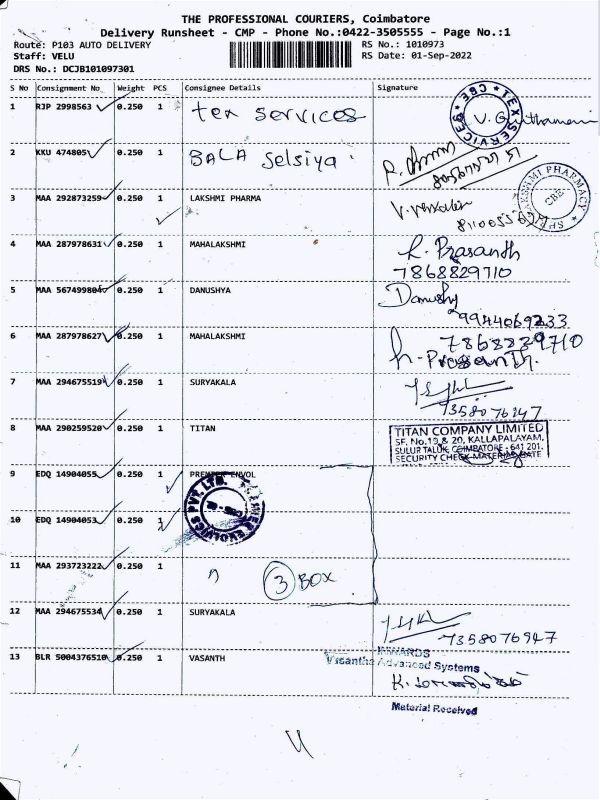 THE PROFESSIONAL COURIERS, Coimbatore
Delivery Runsheet - CMP - Phone No.:0422-3505555 - Page No.:1
Route: P103 AUTO DELIVERY
Staff: VELU
DRS No.: DCJB101097301
RS No.: 1010973
RS Date: 01-Sep-2022
S No Consignment No Weight PCS Consignee Details Signature
1 RJP 2998563 0.250 1 tex services
TEX SERVICES CBE
2 KKU 474805 0.250 1 BALA Selsiya
3 MAA 292873259 0.250 1 LAKSHMI PHARMA
LAKSHMI PHARMACY CBE
4 MAA 287978631 0.250 1 MAHALAKSHMI
h. Prasanth
7868829710
5 MAA 567499804 0.250 1 DANUSHYA
Danushy
9944069233
6 MAA 287978627 0.250 1 MAHALAKSHMI
7868829710
h. Prasanth.
7 MAA 294675519 0.250 1 SURYAKALA
7358076947
8 MAA 290259520 0.250 1 TITAN
TITAN COMPANY LIMITED
SF, No.19 & 20, KALLAPALAYAM,
SULUR TALUK, COIMBATORE - 641 201.
SECURITY CHECK DATE
9 EDQ 14904055 0.250 1 PREMIER ENVOL
PVT. LTD.
10 EDQ 14904053 0.250 1
11 MAA 293723222 0.250 1
3 BOX
12 MAA 294675534 0.250 1 SURYAKALA
7358076947
13 BLR 5004376510 0.250 1 VASANTH
INWARDS
Vasantha Advanced Systems
Material Received